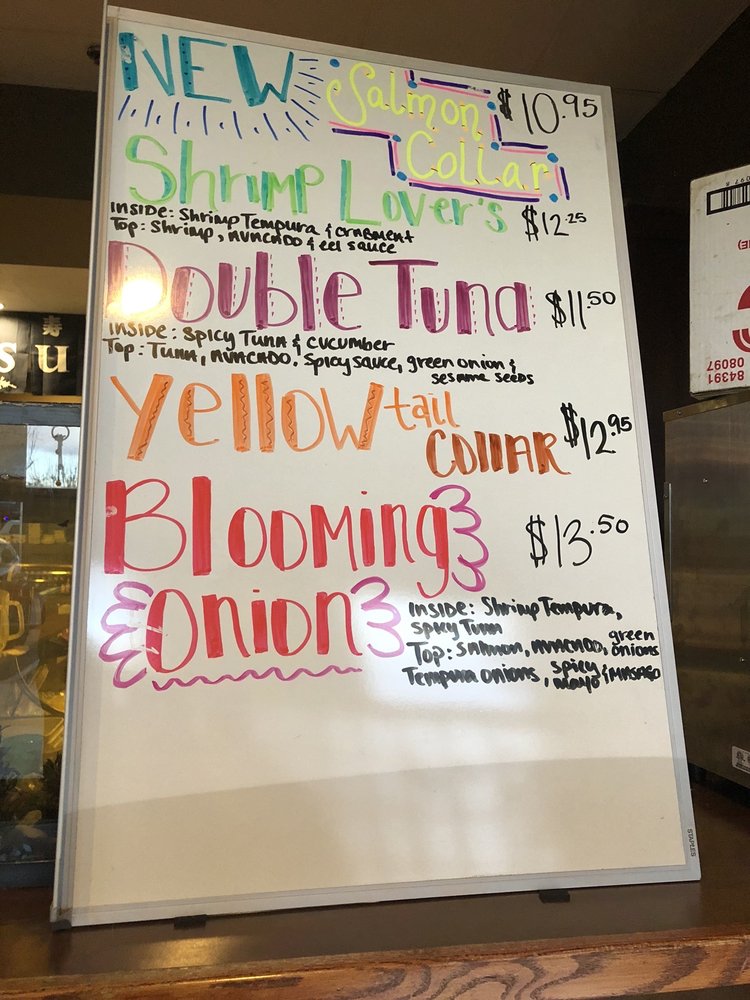 NEW
Salmon Collar $10.95
Shrimp Lover's $12.25
INSIDE: Shrimp Tempura & CRABMENT
Top: Shrimp, AVACADO & eel sauce
Double Tuna $11.50
INSIDE: Spicy Tuna & CUCUMBER
Top: TUNA, AVACADO. Spicy sauce, green onion &
sesame seeds
Yellow tail
COllAR $12.95
Blooming $13.50
Onion
INSIDE: Shrimp Tempura,
spicy Tuna
Top: Salmon, AVACADO, green onions
Tempura onions, spicy mayo & MASAGO
su
寿
84391
08097
STAPLES